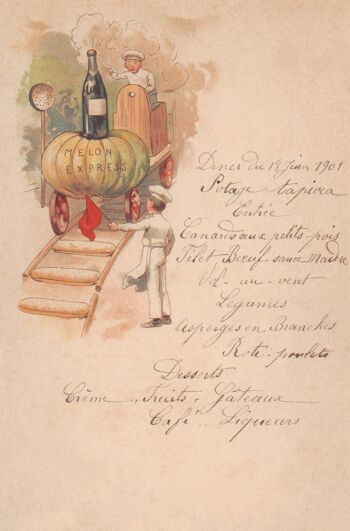 MELON
EXPRESS
Diner du 18 Juin 1901
Potage tapioca
Entrée
Canards aux petits pois
Filet Bœuf sauce Madère
Vol - au - vent
Legumes
Asperges en Branches
Roti : poulets
Desserts
Crême, Fruits, Gâteaux
Café .. Liqueurs